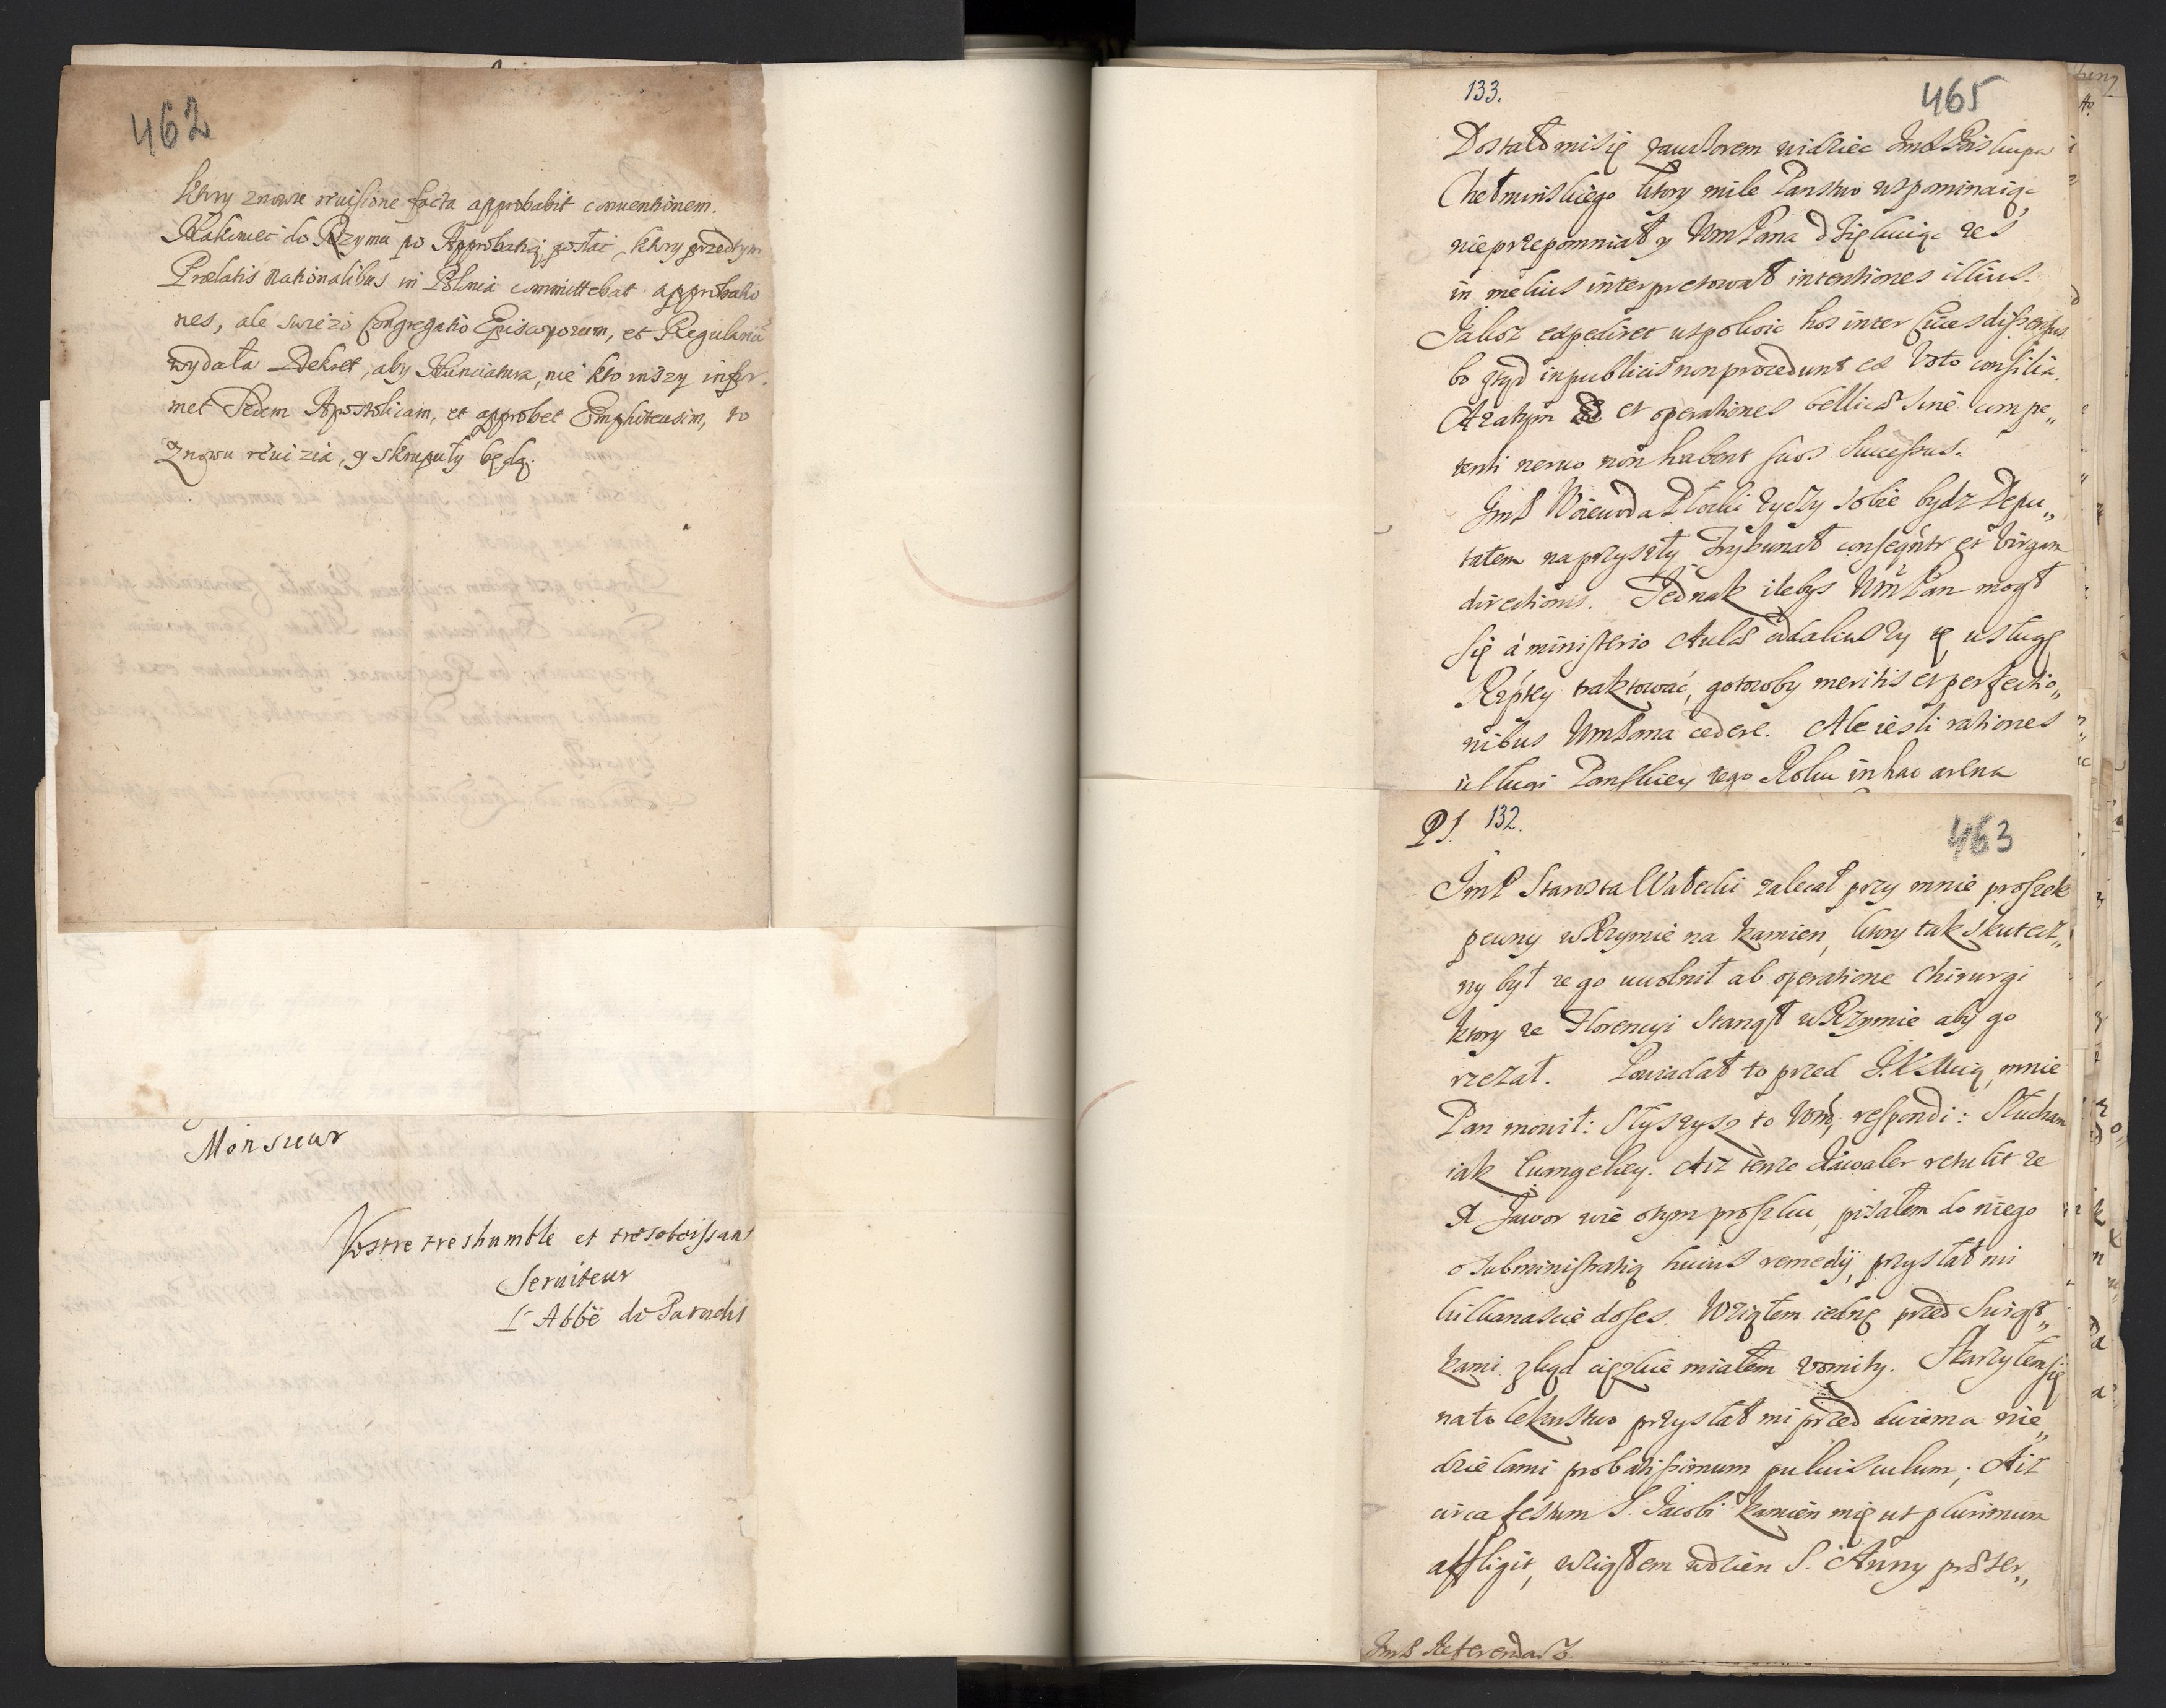 462
ktory znowu reuisione facta approbabit conuentionem.
do Rzymu po Approbatią posłać, ktory przedtym
Prælatis Nationalibus in Polonia committebat approbatio
nes, ale swiezo Congregatio Episcoporum, et Regularium
wydała Dekret, aby Nunciatura, nie kto inszy infor
met Sedem Apostolicam, et approbet Emphiteusim, to
Znowu reuizia, y skrupuły będą.
Monsieur
Vostre treshumble et tresobeissant
Seruiteur
L'Abbé de
133.
465
Dostało mi się zawczorem widziec Jmci Xs Biskupa
Chełminskiego ktory mile Panstwo wspominaiąc
nieprzepomniał y WmPana dziękuiąc ześ
in melius interpretował intentiones illius.
Jakoz expediret uspokoic hos inter Ciues dissensus
bo gdyz in publicis non procedunt ex Voto consilia.
A zatym et operationes bellicæ sine compe„
tenti neruo non habent suos Successus.
JmP Woiewoda Płocki zyczy sobie bydz Depu„
tatem na przyszły Trybunał et Virgam
directionis. Jednak ilebys WmPan mogł
się à ministerio Aulæ oddaliwszy tę usługę
Rzptey traktować, gotowoby meritis et perfectio„
nibus WmPana cedere. Ale iesli rationes
usługi Panskiey tego Roku in hac arena
PS. 132.
463
JmP Starosta Wałecki zalecał przy mnie proszek
pewny w Rzymie na kamien, ktory tak skutecz„
ny był ze go uwolnił ab operatione Chirurgi
ktory ze Florencyi stanął w Rzymie aby go
rzezał. Powiadał to przed J.K.Mcią, mnie
Pan mowił: Słyszysz to Wm, respondi: Słucham
iak Ewangeliey. Aiz tenze Kawaler retulit ze
X Jawor wie o tym proszku, pisałem do niego
o subministratią huius remedij, przysłał mi
kilkanascie doses. Wziąłem iednę przed Swiąt„
kami zkąd cięzkie miałem vomity. Skarzyłem się
na to lekarstwo przysłał mi przed dwiema nie„
dzielami probatissimum puluisculum; Aiz
circa festum S. Jacobi kamień mię ut plurimum
affligit, wziąłem w dzien S. Anny præser„
JmP Referendarz